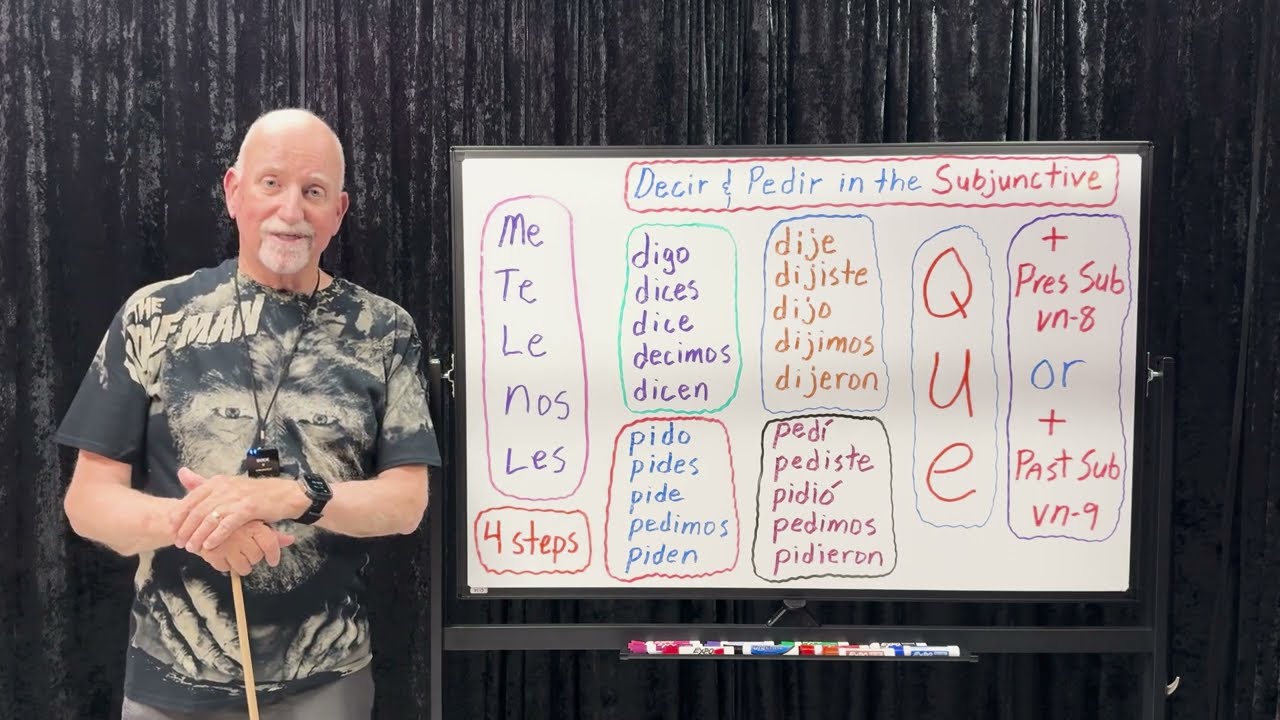 THE
WOLF MAN
Decir & Pedir in the Subjunctive
Me
Te
Le
nos
Les
4 steps
digo
dices
dice
decimos
dicen
pido
pides
pide
pedimos
piden
dije
dijiste
dijo
dijimos
dijeron
pedí
pediste
pidió
pedimos
pidieron
Que
+
Pres Sub
vn-8
or
+
Past Sub
vn-9
EXPO